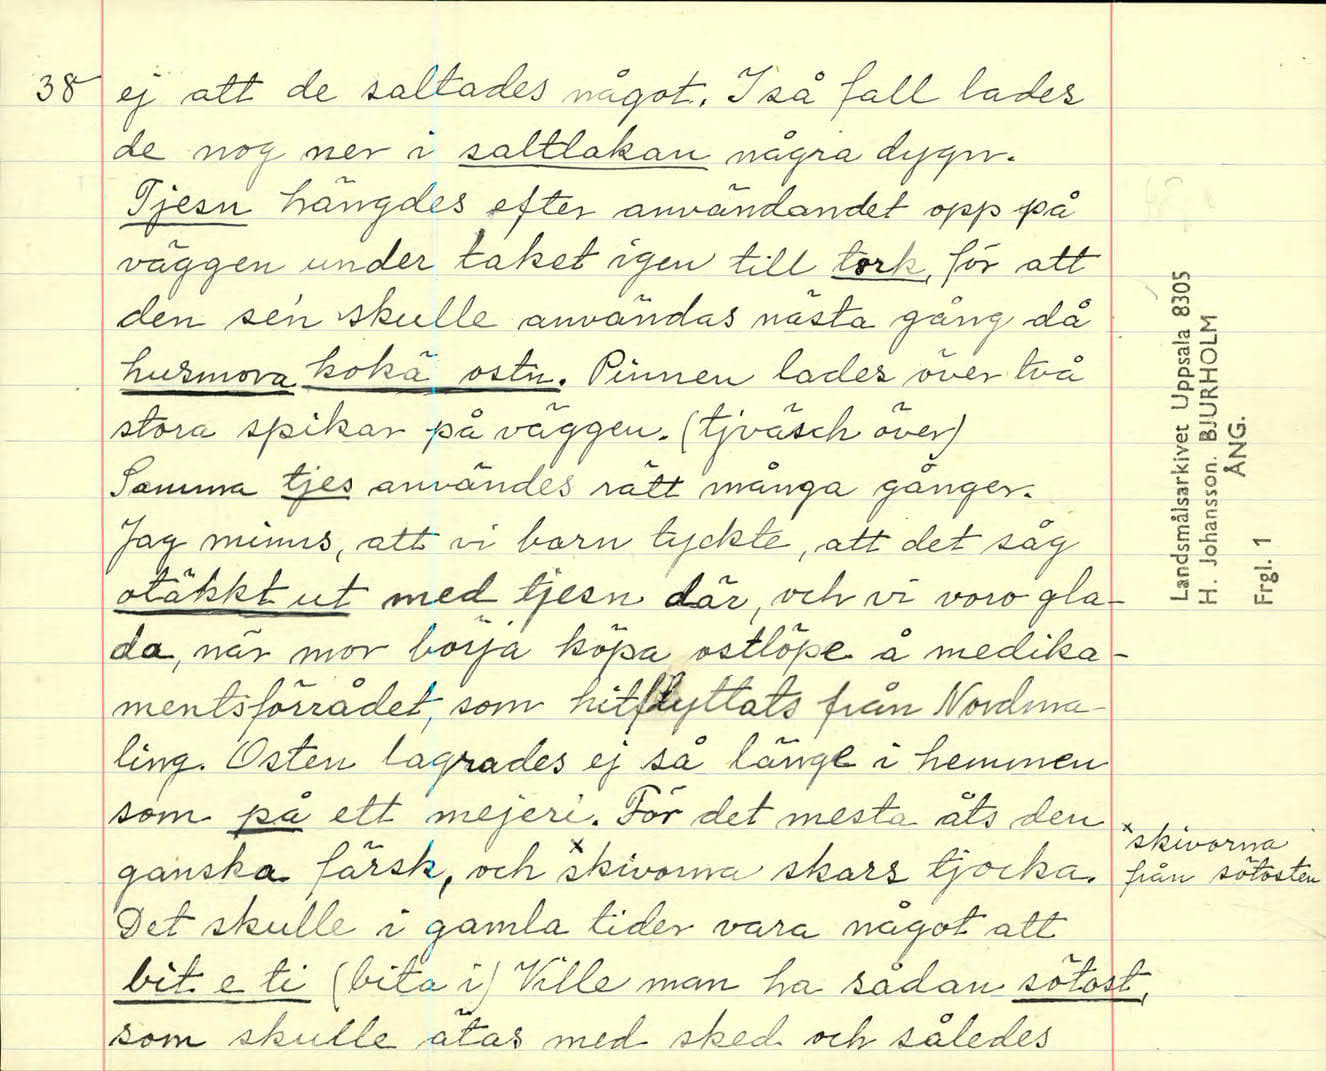 38 ej att de saltades något. I så fall lades
de nog ner i saltlakan några dygn.
Tjesn hängdes efter användandet opp på
väggen under taket igen till tork, för att
den se'n skulle användas nästa gång då
husmora kokä ostn. Pinnen lades över två
stora spikar på väggen. (tjväsch över)
Samma tjes användes rätt många gånger.
Jag minns, att vi barn tyckte, att det såg
otäkkt ut med tjesn där, och vi voro gla-
da, när mor börja köpa ostlöpe å medika-
mentsförrådet, som hitflyttats från Nordma-
ling. Osten lagrades ej så länge i hemmen
som på ett mejeri. För det mesta åts den
ganska färsk, och ˣskivorna skars tjocka.
Det skulle i gamla tider vara något att
bit e ti (bita i) Ville man ha sådan sötost,
som skulle ätas med sked och således
ˣskivorna
från sötosten
Landsmålsarkivet Uppsala 8305
H. Johansson. BJURHOLM
ÅNG.
Frgl. 1